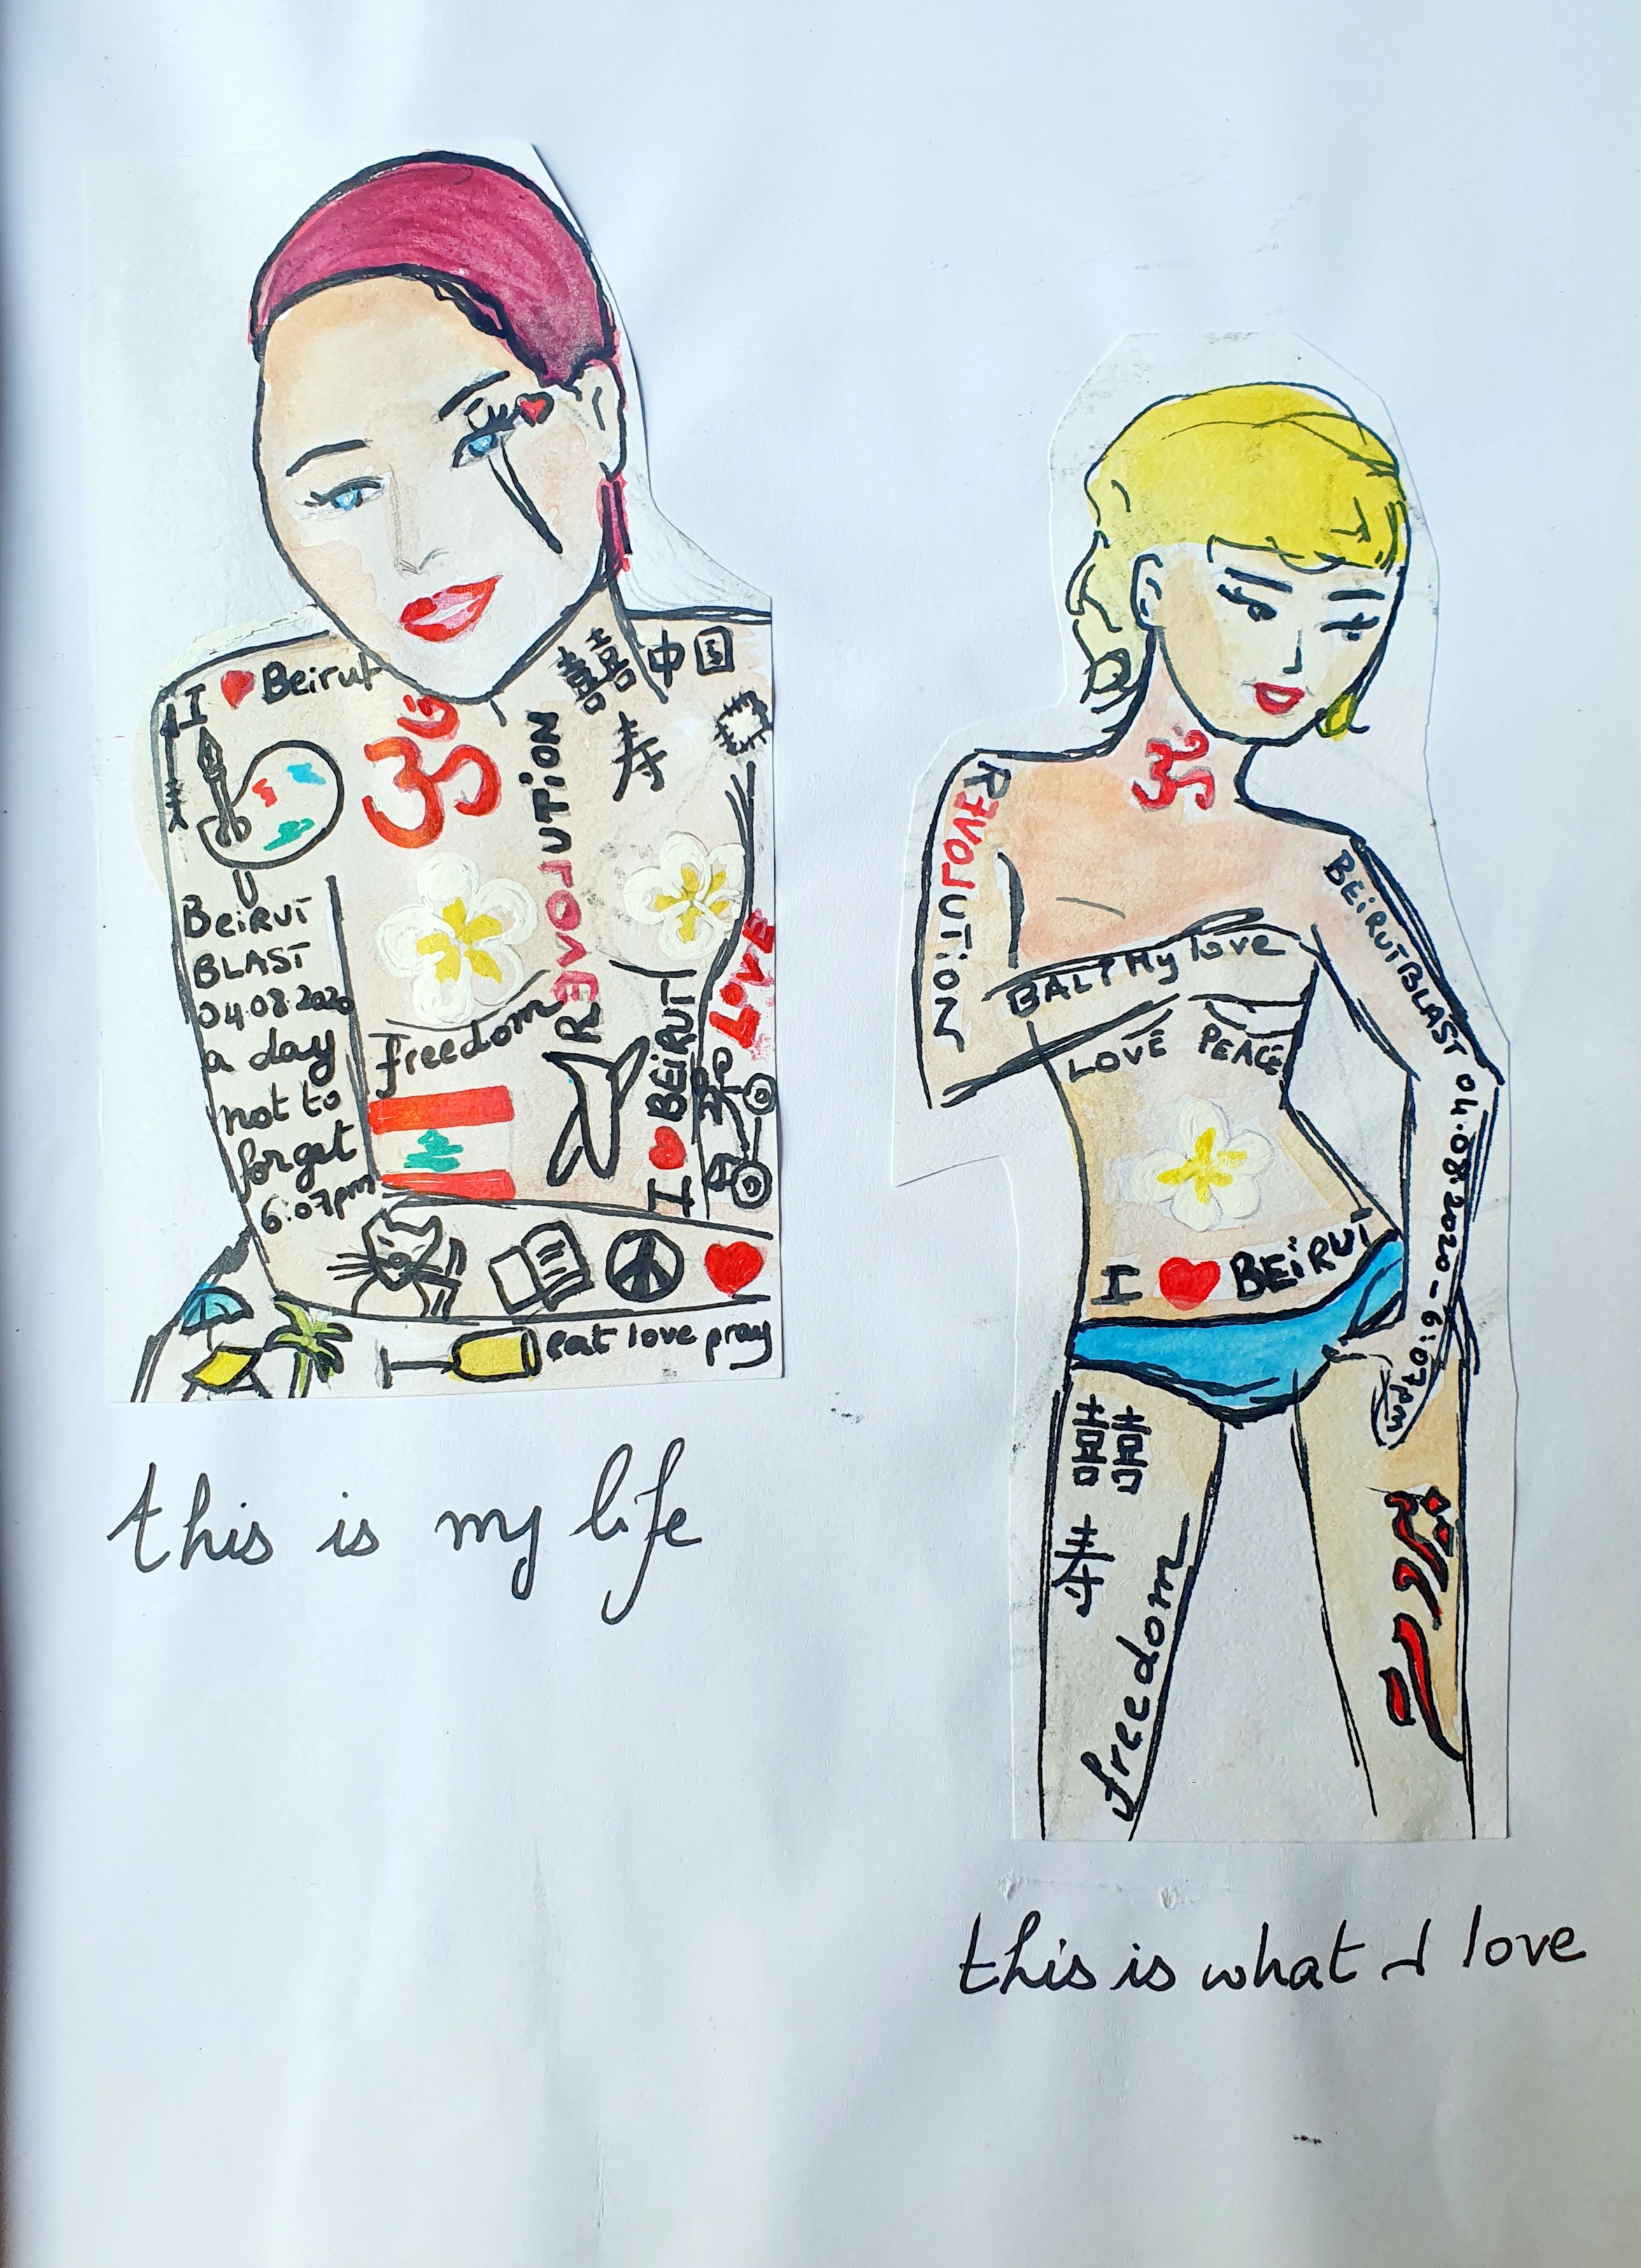 I ❤ Beirut
ॐ
REVOLUTION
囍
中国
寿
BEIRUT
BLAST
04.08.2020
a day
not to
forget
6:07pm
freedom
I ❤ BEIRUT
LOVE
eat love pray
this is my life
ॐ
REVOLUTION
BEIRUT BLAST 04.08.2020 - 6:07pm
BALI My love
LOVE PEACE
I ❤ BEIRUT
囍
寿
freedom
this is what I love